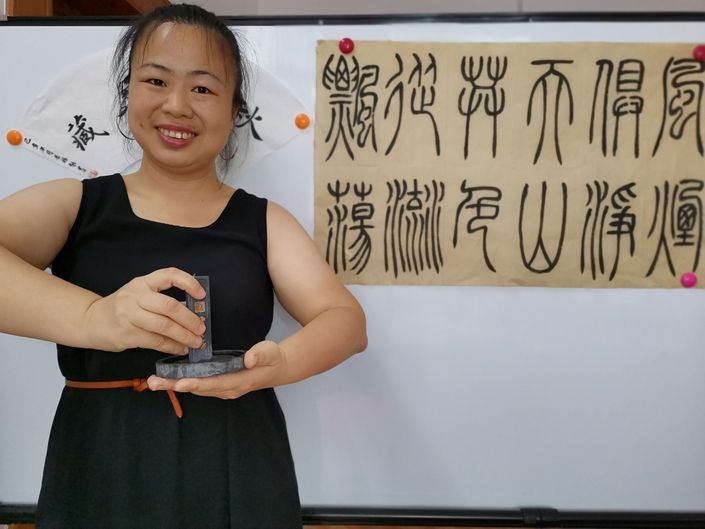 風煙
俱淨
天山
共色
從流
飄蕩
藏